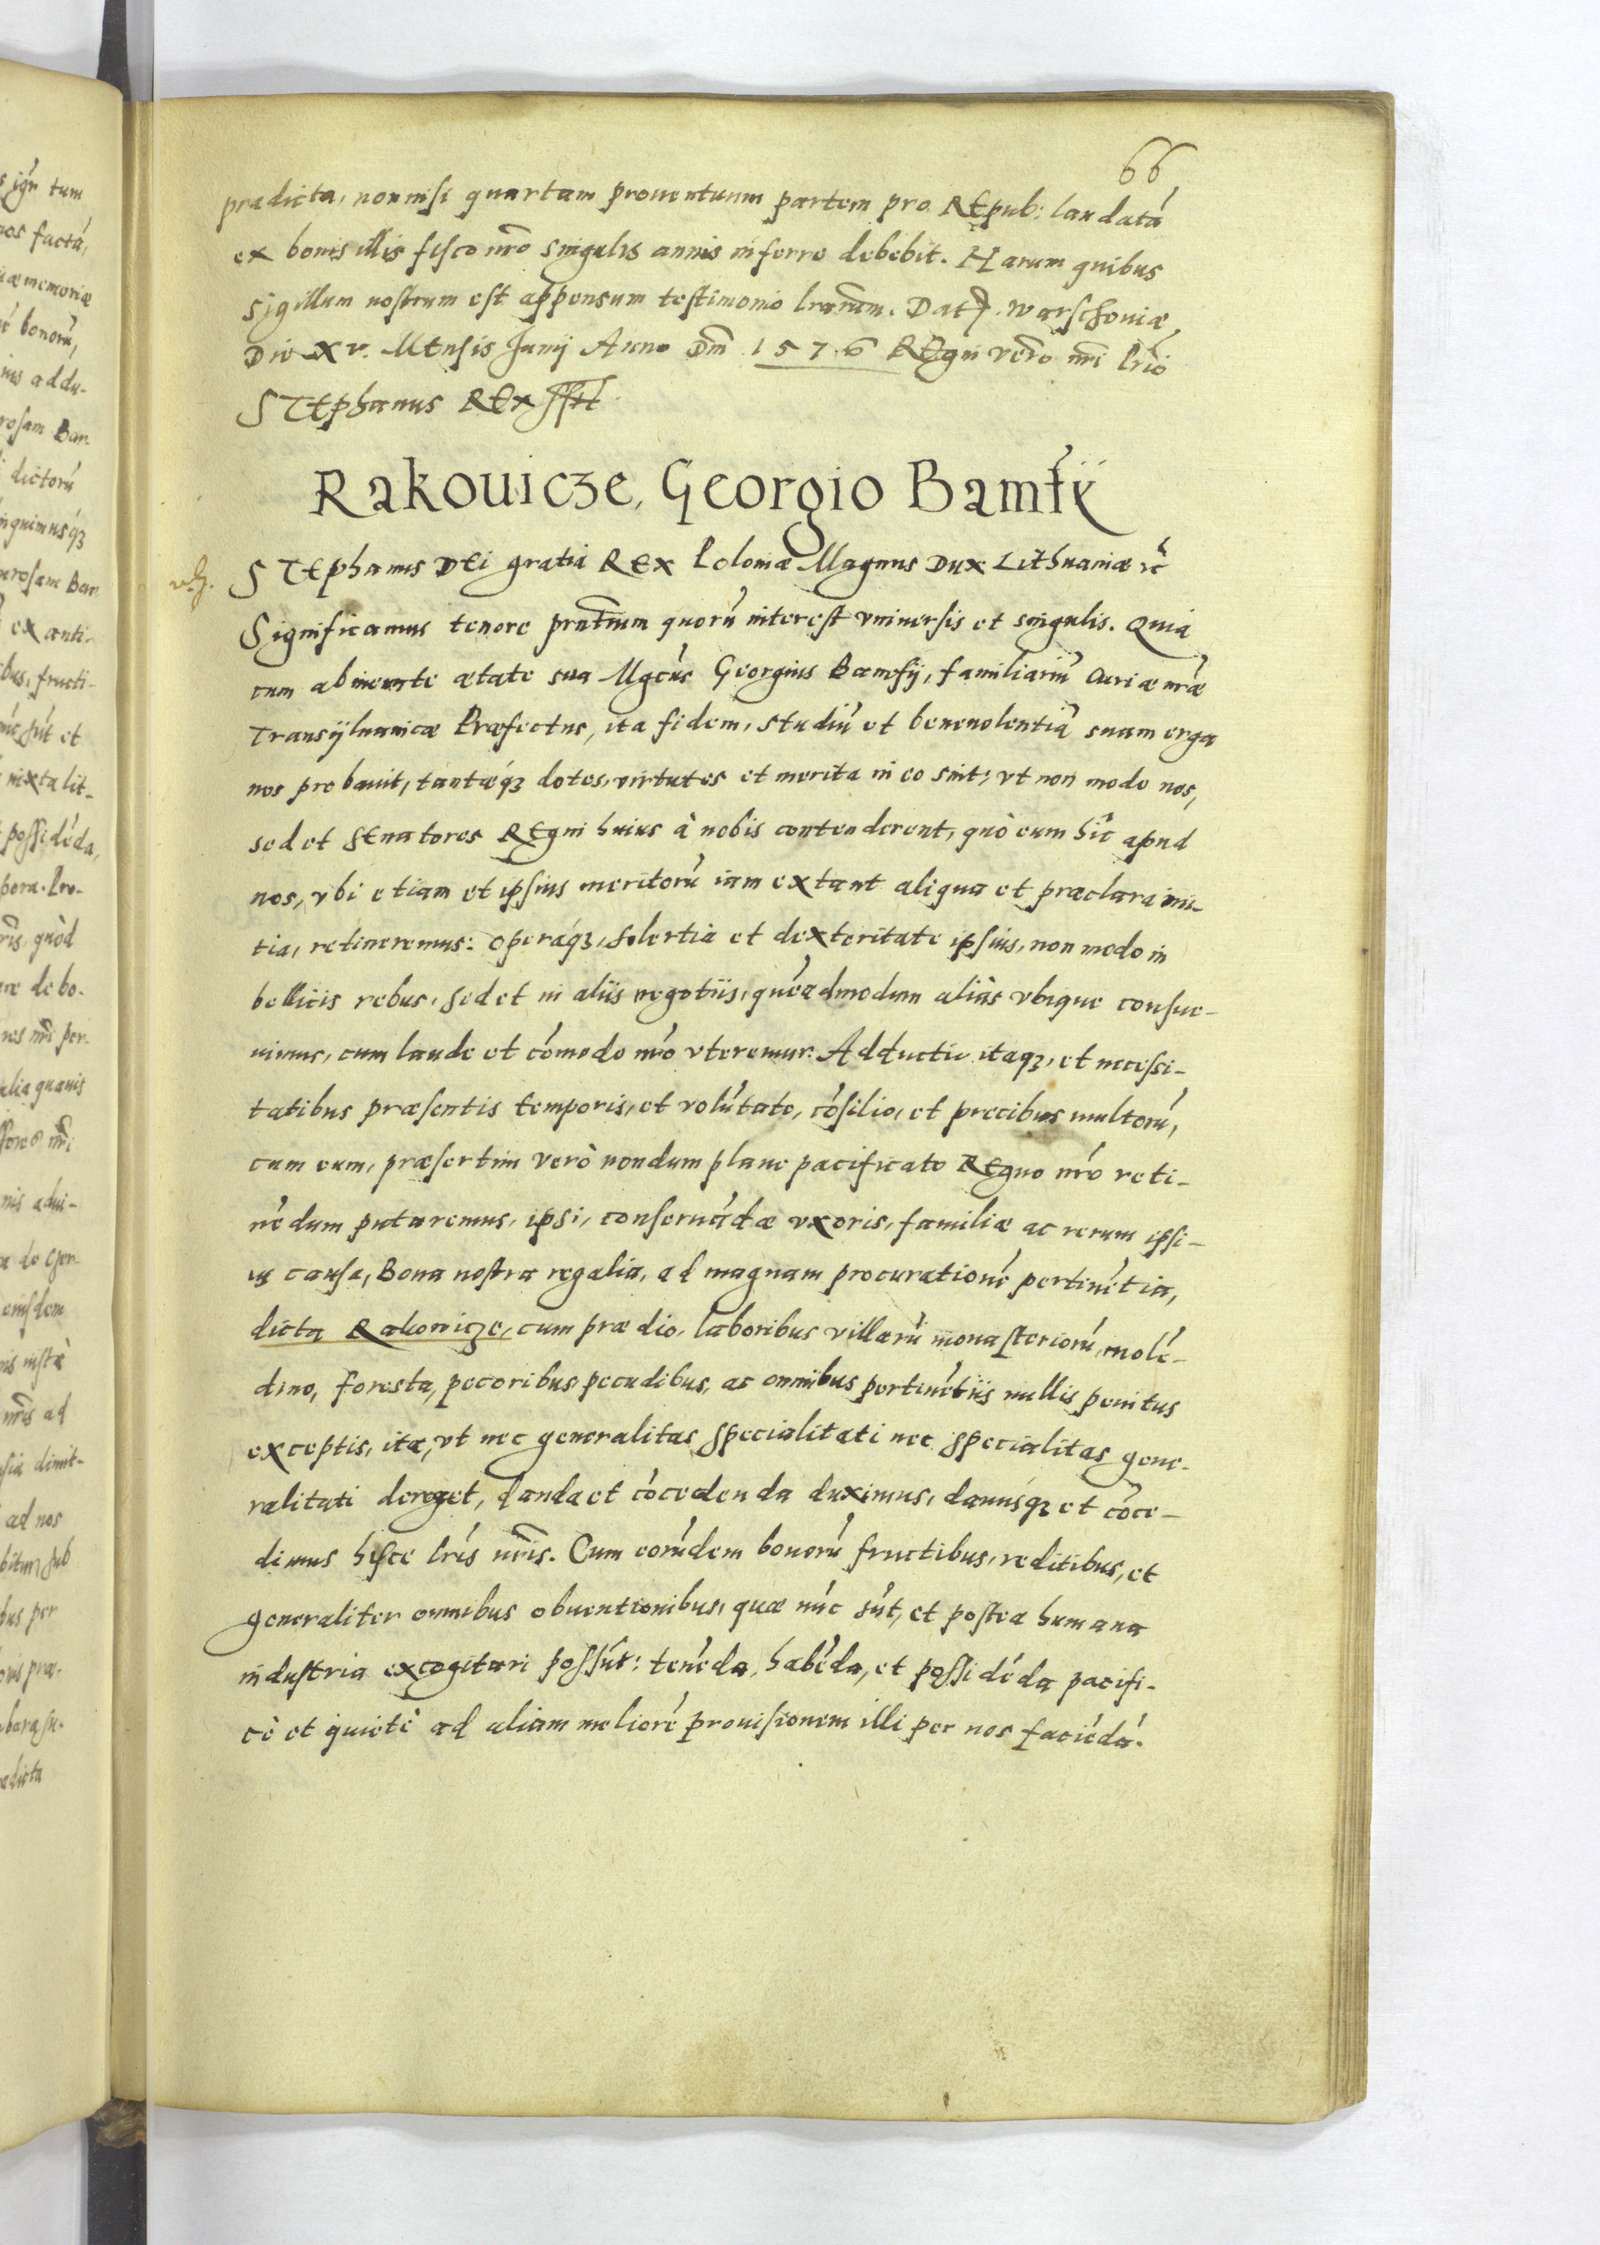 66
prædicta, nonnisi quartam prouentuum partem pro REpub: laudatá
ex bonis illis fisco nr̃o singulis annis inferre debebit. Harum quibus
sigillum nostrum est appensum testimonio lrarum. Dat. Warschouiæ
Die xv. MEnsis Junij Anno Dm̃ 1576 REgni vero nr̃i Prio
STEphanus REx sst
Rakouicze, Georgio Bamfy
STEphanus DEi gratia REx Poloniæ Magnus Dux Lithuaniæ rc̃
Significamus tenore prntium quorú interest vniuersis et singulis. Quia
cum ab ineunte ætate sua Mgcús Georgius Bamfij, familiariú Curiæ nr̃æ
Transyluanicæ Præfectus, ita fidem, studiú et beneuolentiá suam erga
nos probauit, tantæq́ȝ dotes, virtutes et merita in eo sint; vt non modo nos,
sed et SEnatores REgni huius à nobis contenderent, quò eum hîc apud
nos, vbi etiam et ipsius meritorú iam extant aliqua et præclara ini-
tia, retineremus: operáq́ȝ, solertia et dexteritate ipsius, non modo in
bellicis rebus, sed et in aliis negotiis, quéadmodum aliàs vbique consue-
uimus, cum laude et cómodo nr̃o vteremur. Adducti itaqȝ, et necessi-
tatibus præsentis temporis, et volútate, cósilio, et precibus multorú,
cum eum, præsertim verò nondum plane pacificato REgno nr̃o reti-
nédum putaremus, ipsi, conseruádæ vxoris, familiæ ac rerum ipsi-
us causa, Bona nostra regalia, ad magnam procurationé pertinétia,
dicta Rakowicze, cum prædio, laboribus villarú monasteriorú, molé-
dino, foresta, pecoribus pecudibus, ac omnibus pertinétiis nullis penitus
exceptis, ita, vt nec generalitas specialitati nec specialitas gene-
ralitati deroget, danda et cócedenda duximus, damúsq́ȝ et cóce-
dimus hisce lrís nr̃is. Cum eorúdem bonorú fructibus, reditibus, et
generaliter omnibus obuentionibus, quæ núc sút, et postea humana
industria excogitari possút: tenéda, habéda, et possidéda pacifi-
cè et quietè ad aliam melioré prouisionem illi per nos faciédá.